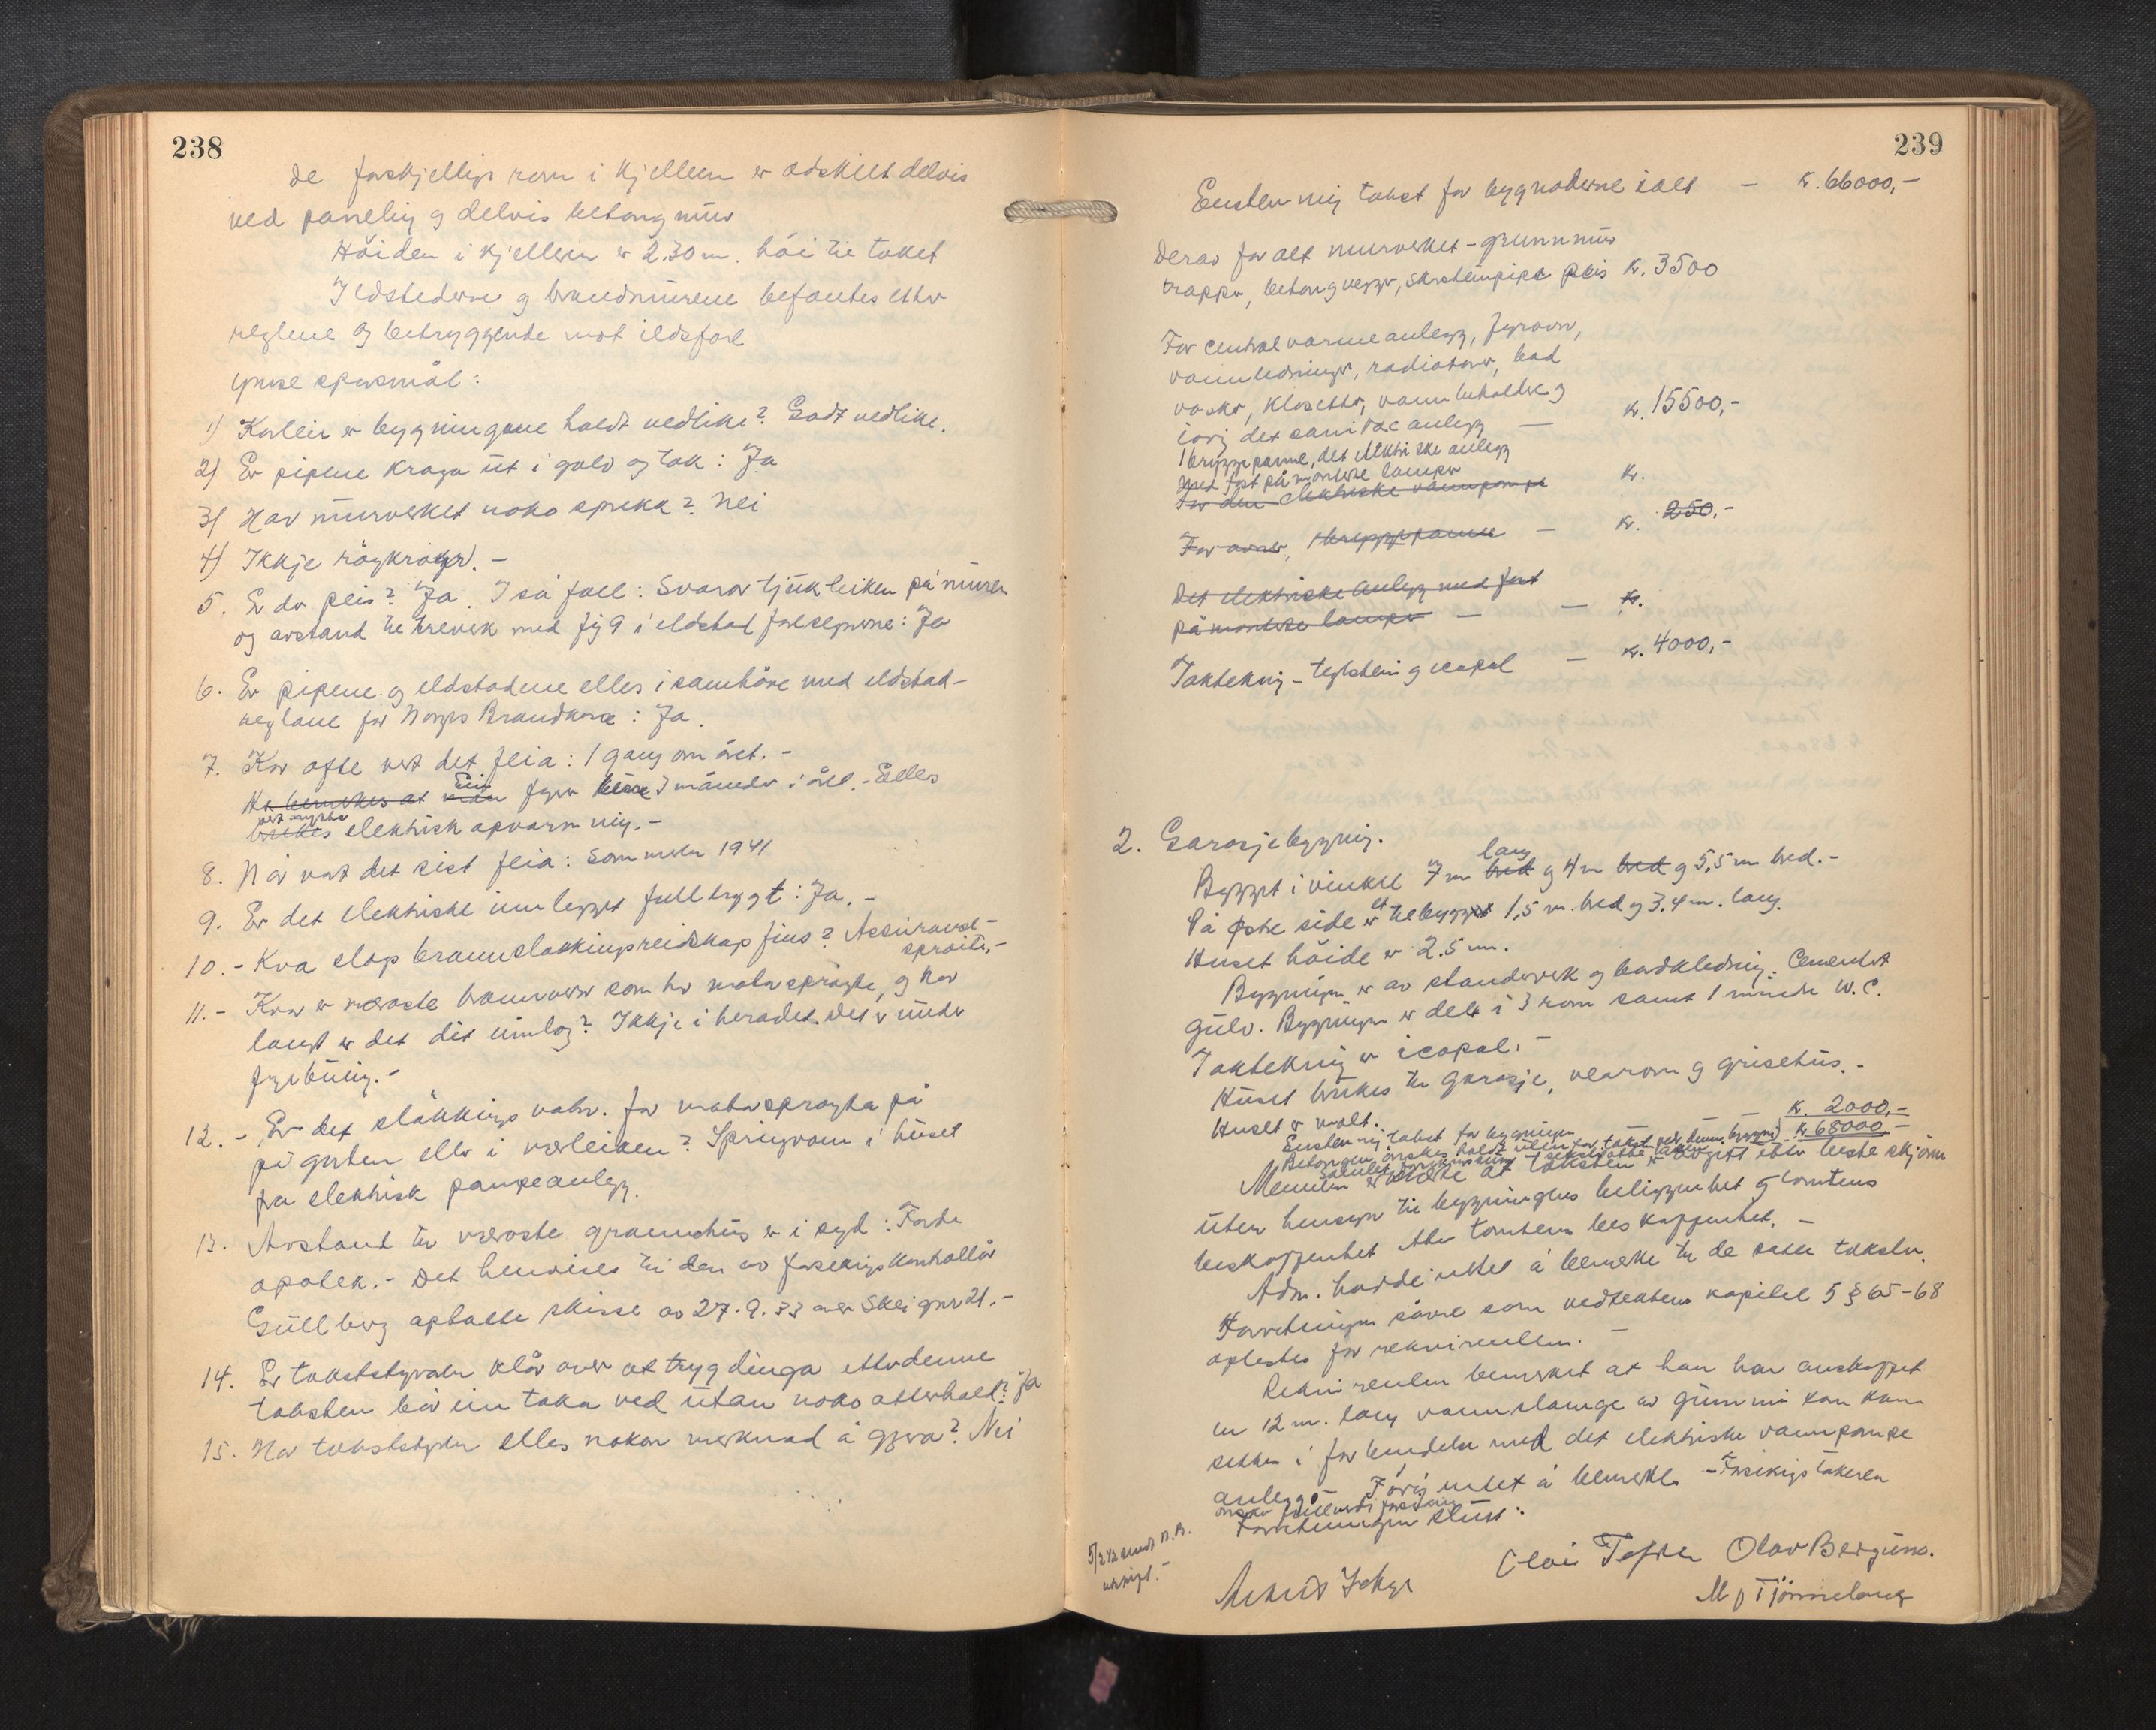 238
de forskjellige rom i kjelleren er adskilt delvis
ved paneling og delvis betong mur
Höiden i kjelleren er 2.30 m. höi til taket
Ildstederne og brandmurene befantes etter
reglene og betryggende mot ildsfare
Ymse spursmål:
1) Korleis er bygningane haldt vedlike? Godt vedlike.
2) Er pipene kraga ut i golv og tak: Ja
3) Har murverket noko sprekk? Nei
4) Ikkje röykröyr). -
5. Er der peis? Ja. I så fall: Svarar tjukkleiken på muren
og avstand til treverk med fig 9 i eldstad forsegnene: Ja
6. Er pipene og eldstadene elles i samhöve med eldstad-
reglane for Norges Brandkasse: Ja.
7. Kor ofte vert det feia: 1 gang om året. -
Ein
fyrer bare 3 måneder i året. - Elles
vert nytta
brukes elektrisk opvarming. -
8. Når vart det sist feia: Sommeren 1941
9. Er det elektriske innlegget fulltrygt: Ja. -
10. - Kva slag brannslokkingsreidskap fins? Assuranse-
sprøite. -
11. - Kva er næraste brannvern som har motorsprøyte, og kor
langt er det dit inntog? Ikkje i heradet. Det er under
fyrebuing. -
12. - Er det slökkings vatn. for motorsprøyta på
på garden eller i nærleiken? Springvann i huset
fra elektrisk pumpeanlegg.
13. Avstand til næraste grannehus er i syd: Førde
apotek. - Det henvises til den av forsikringskontrollör
Gullberg optatte skisse av 27.9.33 over Skei gnr 21. -
14. Er takststyraren klår over at trygdinga etter denne
taksten bör inn taka ved utan noko atterhald? Ja
15. Har takststyrer elles nokon merknad å gjera? Nei
239
Enstemmig takst for bygnaderne ialt - kr. 66000,-
Derav for alt murverket - grunnmur
trapper, betongvegger, skorsteinpipe peis kr. 3500
For centralvarmeanlegg, fyrovn,
vannledninger, radiatorer, bad
vasker, klosetter, vannbeholder og
iøvrig det sanitære anlegg - kr. 15500,-
1 bryggepanne, det elektriske anlegg
med fast påmonterte lamper
For den elektriske vannpumpe kr.
For ovner, 1 bryggepanne - kr. 250.-
Det elektriske anlegg med fast
påmonterte lamper - - kr.
Taktekning - teglstein og icopal - kr. 4000,-
2. Garasjebygning.
lang
Bygget i vinkel 7 m bred og 4 m bred og 5,5 m bred. -
På østre side er et tilbygg 1,5 m. bred og 3.4 m. lang.
Huset höide er 2.5 m.
Bygningen er av standerverk og bordkledning. Cementert
Gulv. Bygningen er delt i 3 rom samt 1 mindre W.C.
Taktekning er icopal. -
Huset brukes til garasje, vedrom og grisehus. -
Huset er malt. kr. 2000,-
Enstemmig takst for bygningen kr 68000,-
Betongen önskes holdt utenfor takst
Mennene er å bemerke at taksten er avgitt efter beste skjönn
uten hensyn til bygningens beliggenhet og tomtens
beskaffenhet eller tomtens beskaffenhet. -
Adm. hadde intet å bemerke til de satte takster.
Forretningen såvel som vedtektens kapitel 5 § 65-68
oplestes for rekvirenten. -
Rekvirenten bemerket at han har anskaffet
en 12 m. lang vannslange av gummi som kan
settes i forbindelse med det elektriske vannpumpe
anlegg. - Forövrig intet å bemerke - Forsikringstakeren
Forretningen slutt:
5/2 42 sendt N.B.
utskrift. -
Olai Tefre Olav Bergum.
M J Tjønneland